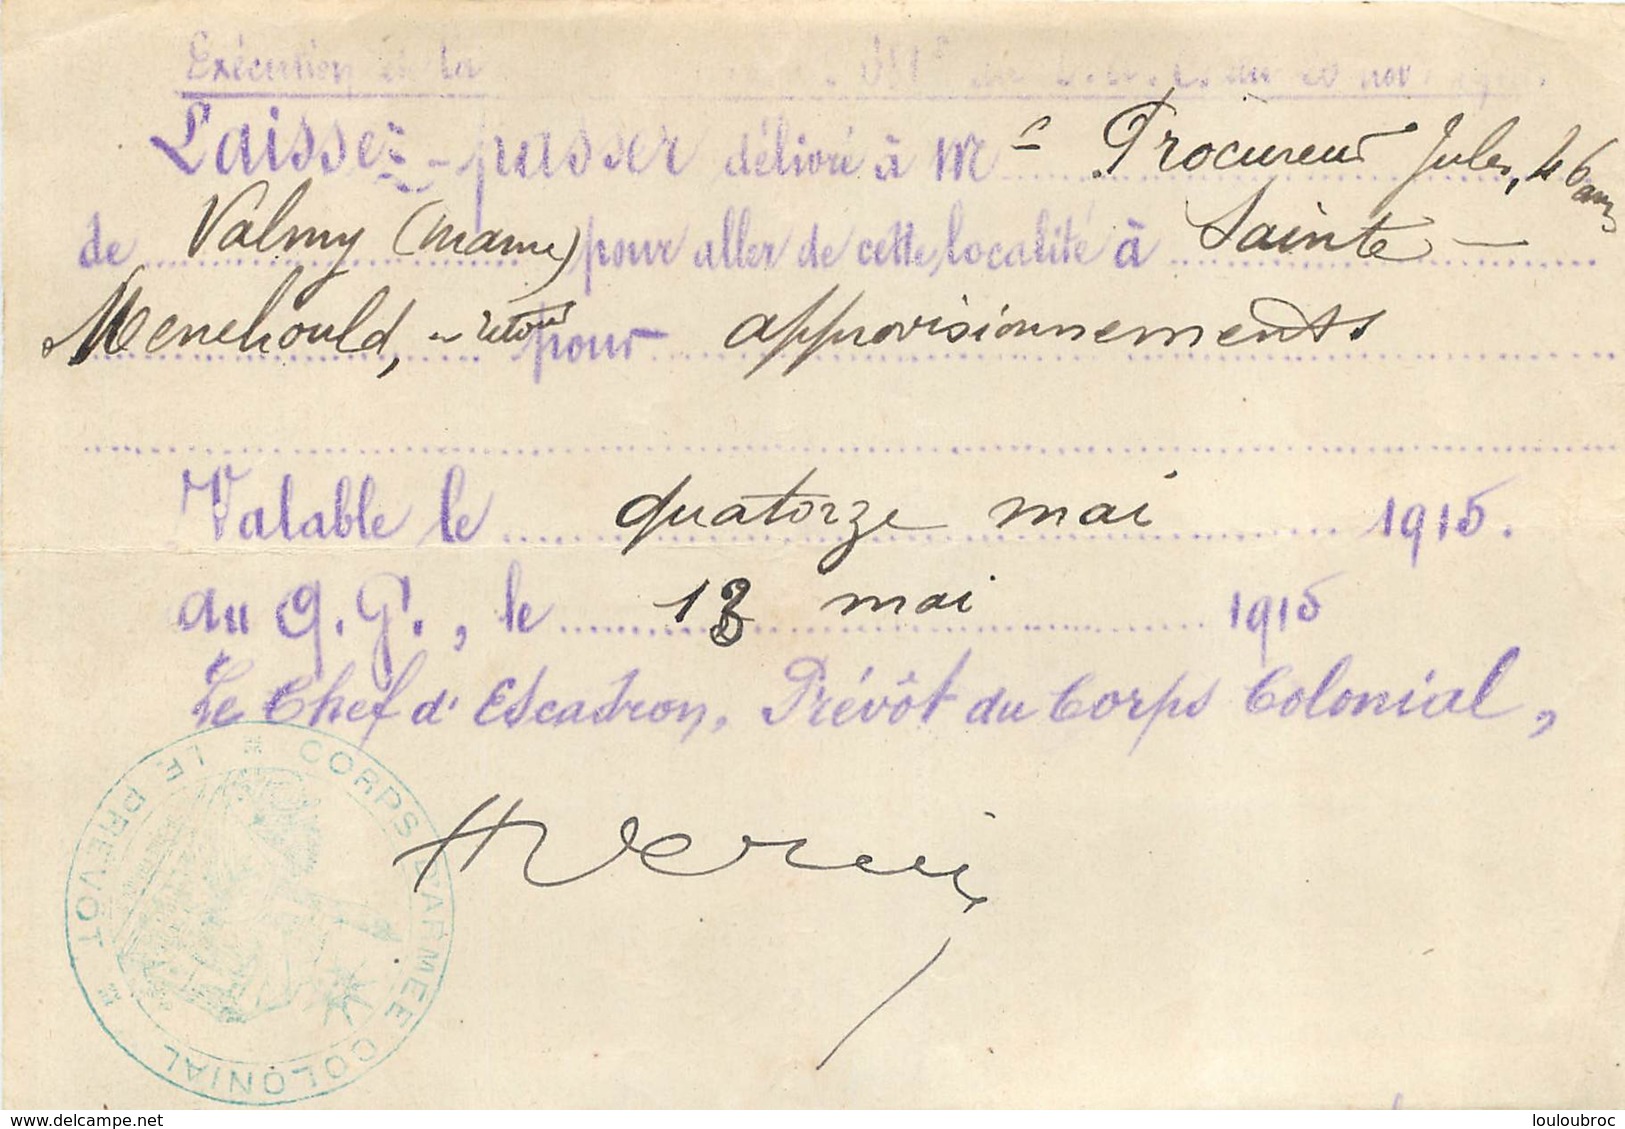 Exécution de la du 20 nov.
Laissez-passer délivré à Mr Procureur Jules, 46 ans
de Valmy (Marne) pour aller de cette localité à Sainte-
Menehould, retour pour approvisionnements
Valable le quatorze mai 1915.
au Q. G., le 13 mai 1915
Le Chef d'Escadron, Prévôt du Corps Colonial,
LE PREVOT
CORPS D'ARMEE COLONIAL
louloubroc